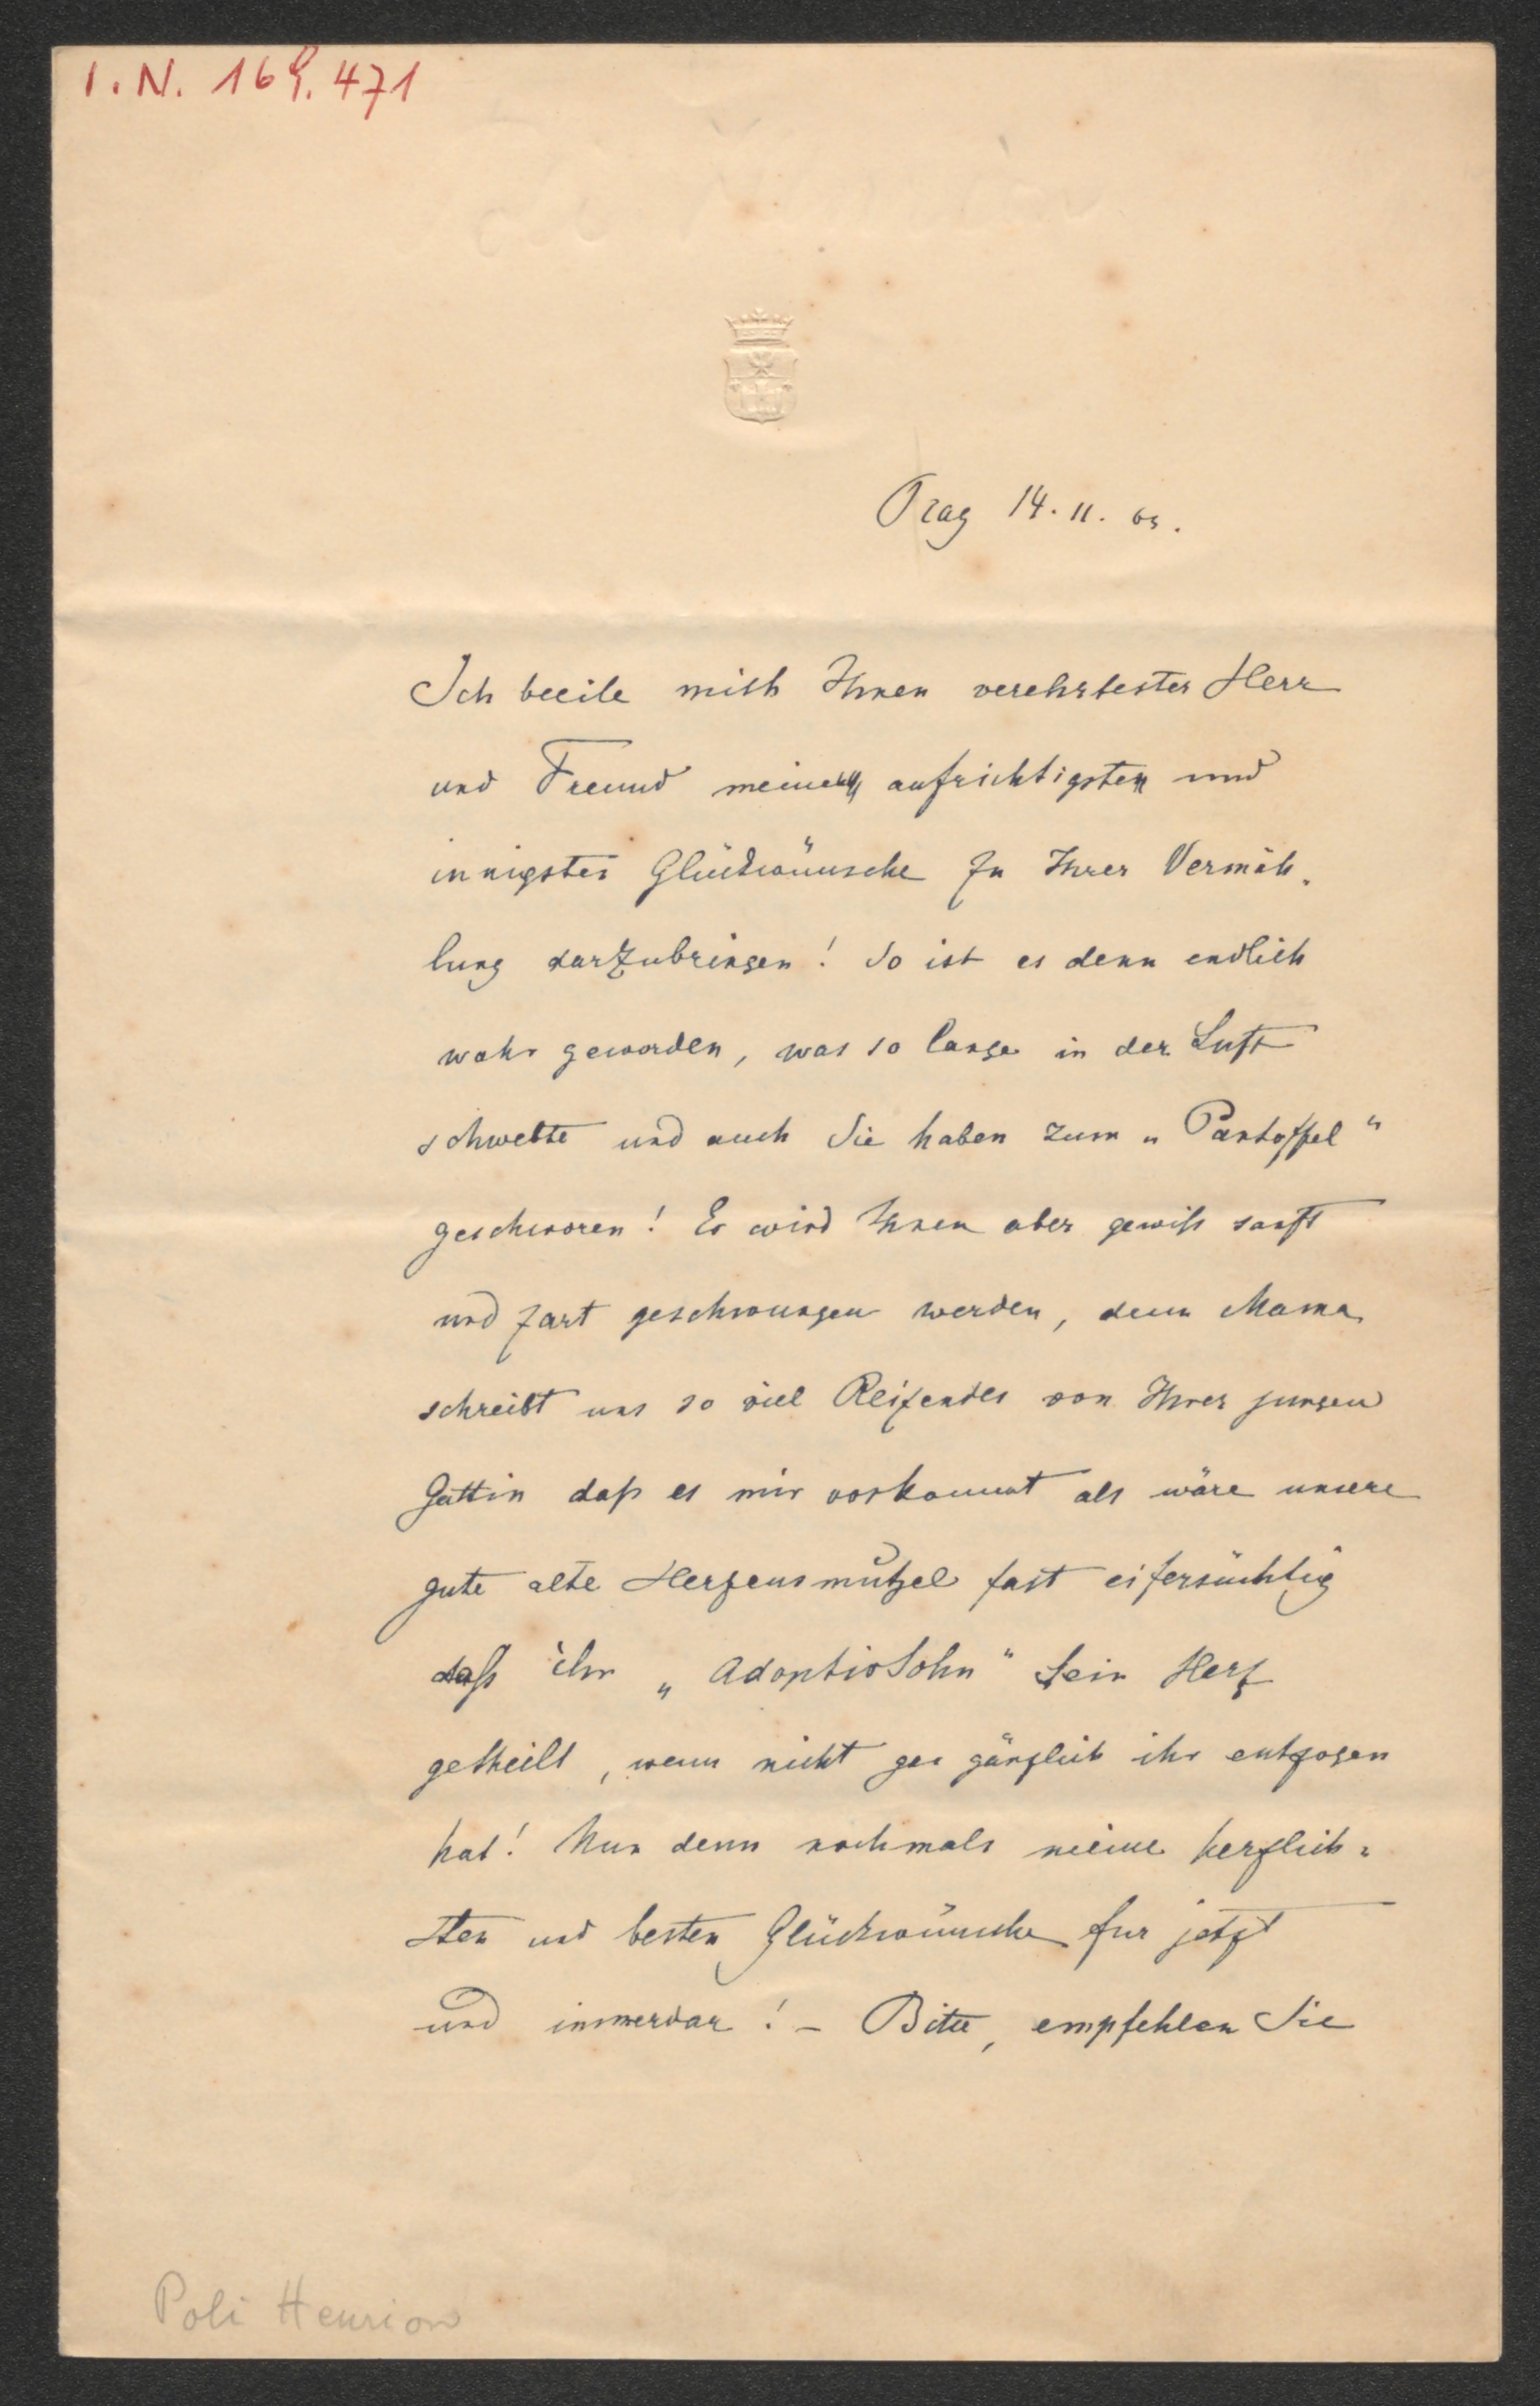 I. N. 169.471
Prag 14. 11. 63.
Ich beeile mich Ihnen verehrtester Herr
und Freund meinen aufrichtigsten und
innigsten Glückwünsche zu Ihrer Vermäh-
lung darzubringen! So ist es denn endlich
wahr geworden, was so lange in der Luft
schwebte und auch Sie haben zum „Pantoffel"
geschworen! Er wird Ihnen aber gewiß sanft
und zart geschwungen werden, denn Mama
schreibt uns so viel Reizendes von Ihrer jungen
Gattin daß es mir vorkommt als wäre unsere
gute alte Herzensmutzel fast eifersüchtig
daß ihr „Adoptivsohn" sein Herz
getheilt, wenn nicht gar gänzlich ihr entzogen
hat! Nun denn nochmals meine herzlich=
sten und besten Glückwünsche für jetzt
und immerdar! – Bitte, empfehlen Sie
Poli Henrion